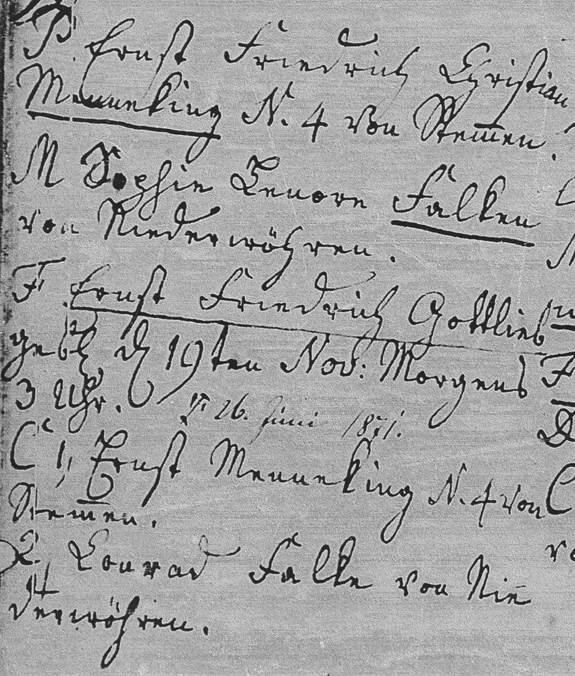 P. Ernst Friedrich Christian
Menneking N. 4 von Stemen.
M Sophie Lenore Falken
von Niederwöhren.
F. Ernst Friedrich Gottlieb
geb. d 19ten Nov: Morgens
3 Uhr. 26. Juni 1871.
C 1, Ernst Menneking N. 4 von
Stemen.
2, Conrad Falke von Nie
derwöhren.